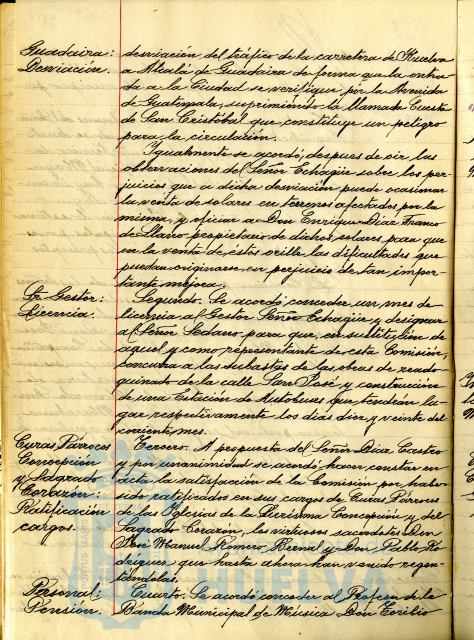 Guadaira:
Desviación.
desviación del tráfico de la carretera de Huelva
a Alcalá de Guadaira de forma que la entra-
da a la Ciudad se verifique por la Avenida
de Guatemala, suprimiendo la llamada Cuesta
de San Cristóbal que constituye un peligro
para la circulación.
Igualmente se acordó, despues de oir las
observaciones del Señor Echagüe sobre los per-
juicios que a dicha desviación puede ocasionar
la venta de solares en terrenos afectados por la
misma, y oficiar a Don Enrique Diaz Franco
de Llano propietario de dichos solares para que
en la venta de éstos orille las dificultades que
puedan originarse en perjuicio de tan impor-
tante mejora.
Sr. Gestor:
Licencia.
Segundo. Se acordó conceder un mes de
licencia al Gestor Señor Echagüe y designar
al Señor Sedano para que, en sustitución de
aquel y como representante de esta Comisión,
concurra a las subastas de las obras de readо-
quinado de la calle San José y construcción
de una Estación de Autobuses que tendrán lu-
gar respectivamente los dias diez y veinte del
corriente mes.
Curas Párrocos
Concepción
y Sagrado
Corazón:
Ratificación
cargos.
Tercero. A propuesta del Señor Diaz Castro
y por unanimidad se acordó hacer constar en
acta la satisfacción de la Comisión por haber
sido ratificados en sus cargos de Curas Párrocos
de las Iglesias de la Purisima Concepción y del
Sagrado Corazón, los virtuosos sacerdotes Don
José Manuel Romero Bernal y Don Pablo Ro-
driguez que hasta ahora han venido regen-
tándolas.
Personal:
Pensión.
Cuarto. Se acordó conceder al Profesor de la
Banda Municipal de Música Don Emilio
HUELVA